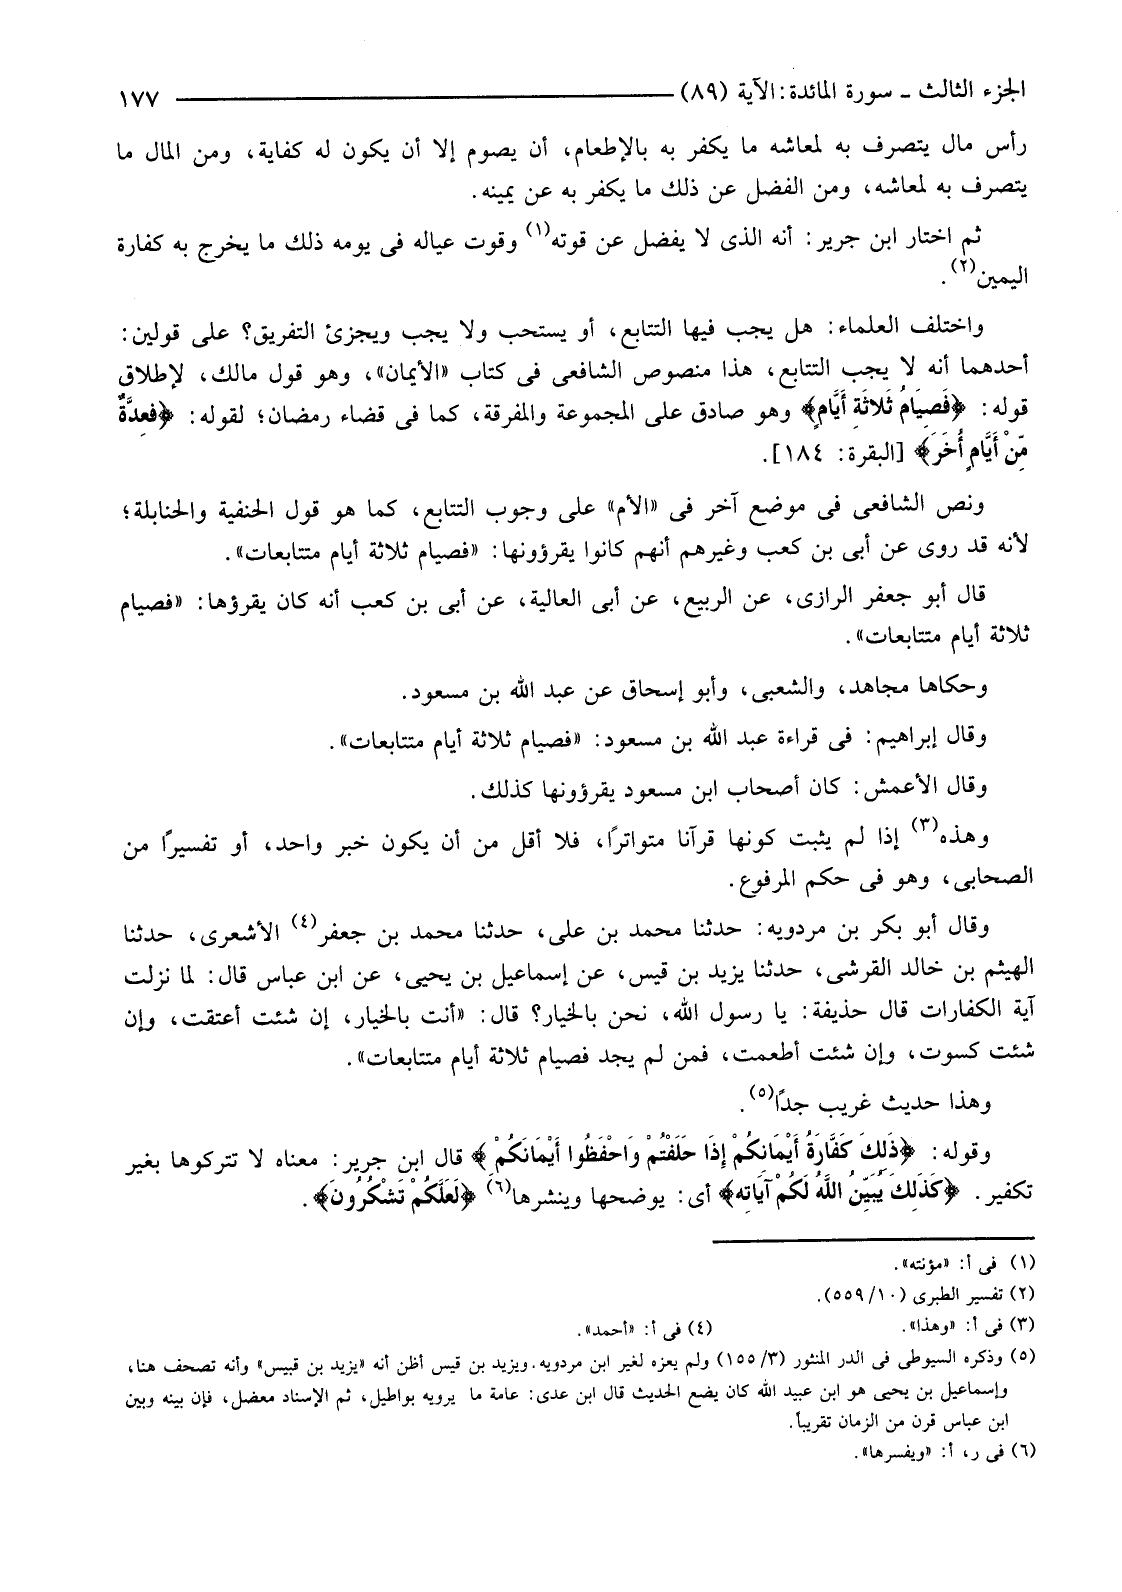 الجزء الثالث ـ سورة المائدة: الآية (٨٩) ١٧٧
رأس مال يتصرف به لمعاشه ما يكفر به بالإطعام، أن يصوم إلا أن يكون له كفاية، ومن المال ما
يتصرف به لمعاشه، ومن الفضل عن ذلك ما يكفر به عن يمينه.
ثم اختار ابن جرير: أنه الذى لا يفضل عن قوته(١) وقوت عياله فى يومه ذلك ما يخرج به كفارة
اليمين(٢).
واختلف العلماء: هل يجب فيها التتابع، أو يستحب ولا يجب ويجزئ التفريق؟ على قولين:
أحدهما أنه لا يجب التتابع، هذا منصوص الشافعى فى كتاب «الأيمان»، وهو قول مالك، لإطلاق
قوله: ﴿فَصِيَامُ ثَلاثَةِ أَيَّامٍ﴾ وهو صادق على المجموعة والمفرقة، كما فى قضاء رمضان؛ لقوله: ﴿فَعِدَّةٌ
مِّنْ أَيَّامٍ أُخَرَ﴾ [البقرة: ١٨٤].
ونص الشافعى فى موضع آخر فى «الأم» على وجوب التتابع، كما هو قول الحنفية والحنابلة؛
لأنه قد روى عن أبى بن كعب وغيرهم أنهم كانوا يقرؤونها: «فصيام ثلاثة أيام متتابعات».
قال أبو جعفر الرازى، عن الربيع، عن أبى العالية، عن أبى بن كعب أنه كان يقرؤها: «فصيام
ثلاثة أيام متتابعات».
وحكاها مجاهد، والشعبى، وأبو إسحاق عن عبد الله بن مسعود.
وقال إبراهيم: فى قراءة عبد الله بن مسعود: «فصيام ثلاثة أيام متتابعات».
وقال الأعمش: كان أصحاب ابن مسعود يقرؤونها كذلك.
وهذه(٣) إذا لم يثبت كونها قرآنا متواترًا، فلا أقل من أن يكون خبر واحد، أو تفسيرًا من
الصحابى، وهو فى حكم المرفوع.
وقال أبو بكر بن مردويه: حدثنا محمد بن على، حدثنا محمد بن جعفر(٤) الأشعرى، حدثنا
الهيثم بن خالد القرشى، حدثنا يزيد بن قيس، عن إسماعيل بن يحيى، عن ابن عباس قال: لما نزلت
آية الكفارات قال حذيفة: يا رسول الله، نحن بالخيار؟ قال: «أنت بالخيار، إن شئت أعتقت، وإن
شئت كسوت، وإن شئت أطعمت، فمن لم يجد فصيام ثلاثة أيام متتابعات».
وهذا حديث غريب جدًا(٥).
وقوله: ﴿ذَلِكَ كَفَّارَةُ أَيْمَانِكُمْ إِذَا حَلَفْتُمْ وَاحْفَظُوا أَيْمَانَكُمْ﴾ قال ابن جرير: معناه لا تتركوها بغير
تكفير. ﴿كَذَلِكَ يُبَيِّنُ اللَّهُ لَكُمْ آيَاتِهِ﴾ أى: يوضحها وينشرها(٦) ﴿لَعَلَّكُمْ تَشْكُرُونَ﴾.
(١) فى أ: «مؤنته».
(٢) تفسير الطبرى (١٠/٥٥٩).
(٣) فى أ: «وهذا». (٤) فى أ: «أحمد».
(٥) وذكره السيوطى فى الدر المنثور (٣/١٥٥) ولم يعزه لغير ابن مردويه. ويزيد بن قيس أظن أنه «يزيد بن قبيس» وأنه تصحف هنا،
وإسماعيل بن يحيى هو ابن عبيد الله كان يضع الحديث قال ابن عدى: عامة ما يرويه بواطيل، ثم الإسناد معضل، فإن بينه وبين
ابن عباس قرن من الزمان تقريباً.
(٦) فى ر، أ: «ويفسرها».